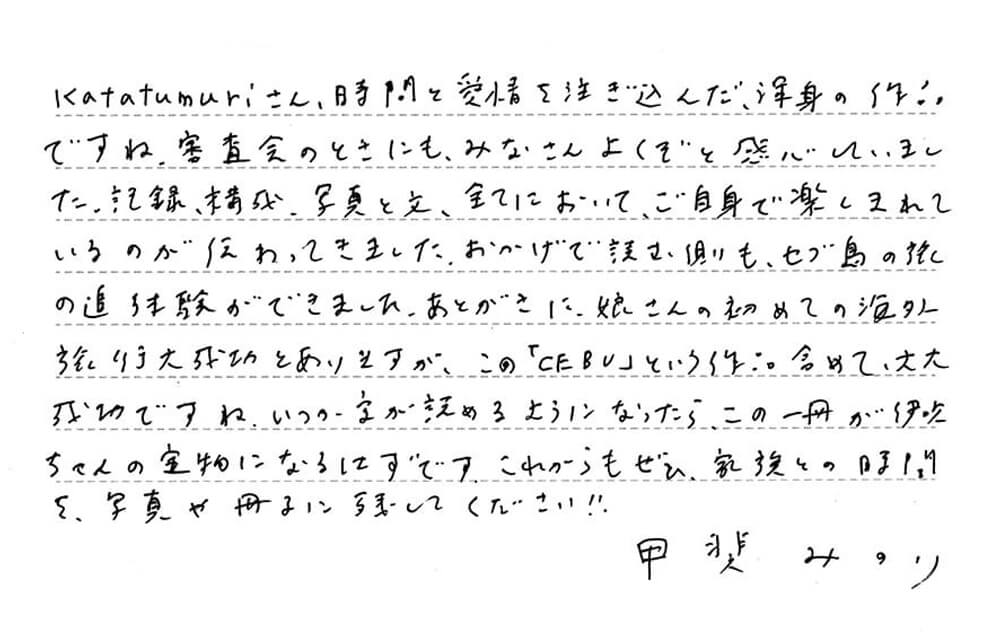 Katatumuriさん、時間と愛情を注ぎ込んだ、渾身の作品
ですね。審査会のときにも、みなさんよくぞと感心していまし
た。記録、構成、写真と文、全てにおいて、ご自身で楽しまれて
いるのが伝わってきました。おかげで読む側も、セブ島の旅
の追体験ができました。あとがきに、娘さんの初めての海外
旅行大成功とありますが、この「CEBU」という作品含めて、大大
成功ですね。いつか字が読めるようになったら、この一冊が伊吹
ちゃんの宝物になるはずです。これからもぜひ、家族との時間
を、写真や冊子に残してください!!
甲斐みのり